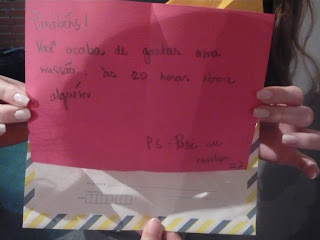 Parabéns!
Você acaba de ganhar uma
missão: às 20 horas abrace
alguém
P.S.: Passe